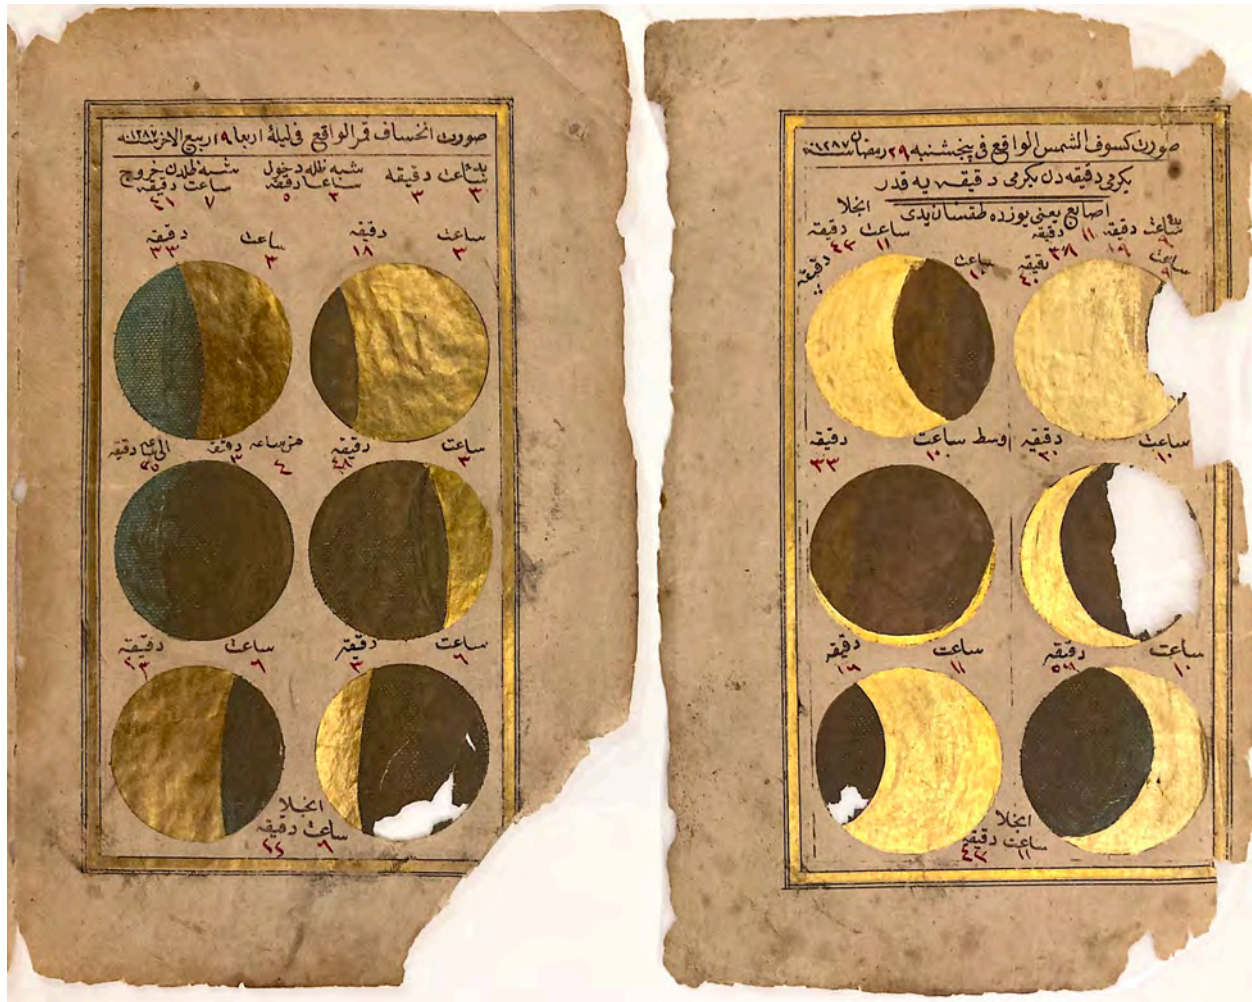 صورت كسوف الشمس الواقع فى پنجشنبه ٢٩ رمضان سنه ١٢٨٧
يكرمى دقيقه دن يكرمى دقيقه يه قدر
اصابع يعنى يوزده طقسان يدى
انجلا
ساعت دقيقه دقيقه
ساعت دقيقه
٩ ١٩ ١١
١١ ٤٢
ساعت دقيقه
٩ ٤٠
ساعت دقيقه
١٠
ساعت دقيقه
١٠ ٢٠
وسط ساعت دقيقه
١٠ ٣٣
ساعت دقيقه
١٠ ٥٦
ساعت دقيقه
١١ ١٦
انجلا
ساعت دقيقه
١١ ٤٢
صورت انخساف قمر الواقع فى ليلة اربعا ١٩ ربيع الاخر سنه ١٢٨٧
ساعت دقيقه
٣ ٣
شبه ظله دخول
ساعت دقيقه
٢ ٥
شبه ظلدن خروج
ساعت دقيقه
٧ ٤١
ساعت دقيقه
٣ ١٨
ساعت دقيقه
٣ ٣٣
ساعت دقيقه
٣ ٤٨
من ساعه دقيقه الى ساعه دقيقه
٤ ٣
ساعت دقيقه
٦ ٣
ساعت دقيقه
٦
انجلا
ساعت دقيقه
٦